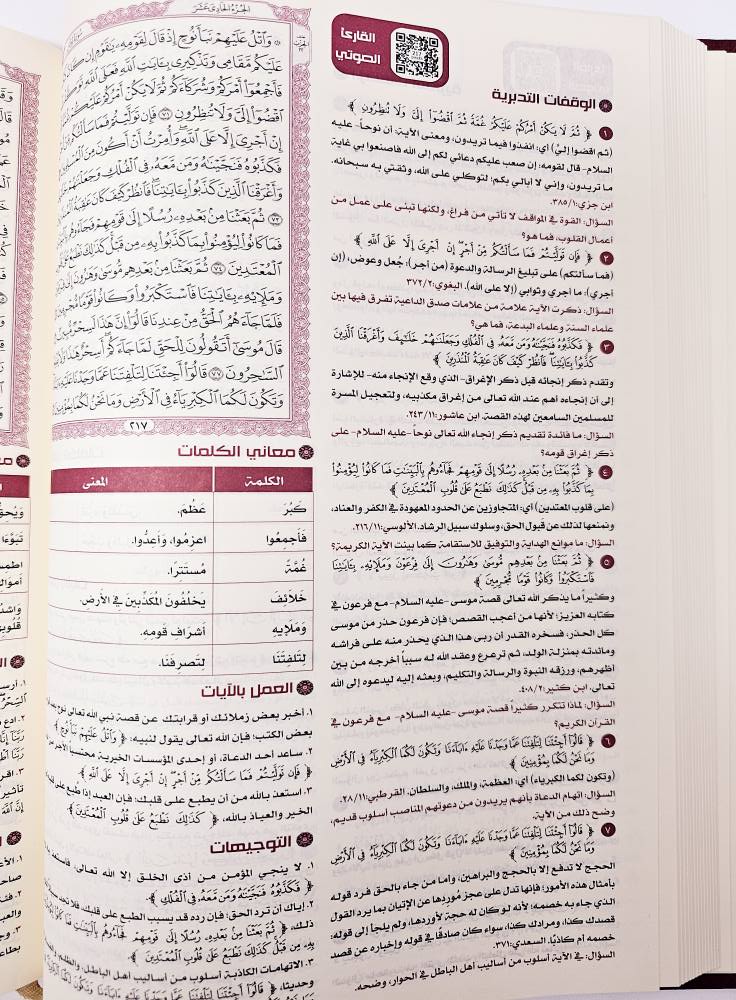 الجزء الحادي عشر
وَاتْلُ عَلَيْهِمْ نَبَأَ نُوحٍ إِذْ قَالَ لِقَوْمِهِ يَاقَوْمِ إِن كَانَ
عَلَيْكُم مَّقَامِي وَتَذْكِيرِي بِآيَاتِ اللَّهِ فَعَلَى اللَّهِ
فَأَجْمِعُوا أَمْرَكُمْ وَشُرَكَاءَكُمْ ثُمَّ لَا يَكُنْ أَمْرُكُمْ عَلَيْكُمْ
اقْضُوا إِلَيَّ وَلَا تُنظِرُونِ ٧١ فَإِن تَوَلَّيْتُمْ فَمَا سَأَلْتُكُم
إِنْ أَجْرِيَ إِلَّا عَلَى اللَّهِ وَأُمِرْتُ أَنْ أَكُونَ مِنَ
فَكَذَّبُوهُ فَنَجَّيْنَاهُ وَمَن مَّعَهُ فِي الْفُلْكِ وَجَعَلْنَاهُمْ
وَأَغْرَقْنَا الَّذِينَ كَذَّبُوا بِآيَاتِنَا فَانظُرْ كَيْفَ كَانَ عَاقِبَةُ
٧٣ ثُمَّ بَعَثْنَا مِن بَعْدِهِ رُسُلًا إِلَى قَوْمِهِمْ فَجَاءُوهُم
فَمَا كَانُوا لِيُؤْمِنُوا بِمَا كَذَّبُوا بِهِ مِن قَبْلُ كَذَلِكَ نَطْبَعُ
الْمُعْتَدِينَ ٧٤ ثُمَّ بَعَثْنَا مِن بَعْدِهِم مُّوسَى وَهَارُونَ
وَمَلَإِيْهِ بِآيَاتِنَا فَاسْتَكْبَرُوا وَكَانُوا قَوْمًا
فَلَمَّا جَاءَهُمُ الْحَقُّ مِنْ عِندِنَا قَالُوا إِنَّ هَذَا لَسِحْرٌ
قَالَ مُوسَى أَتَقُولُونَ لِلْحَقِّ لَمَّا جَاءَكُمْ أَسِحْرٌ هَذَا
السَّاحِرُونَ ٧٧ قَالُوا أَجِئْتَنَا لِتَلْفِتَنَا عَمَّا وَجَدْنَا عَلَيْهِ
وَتَكُونَ لَكُمَا الْكِبْرِيَاءُ فِي الْأَرْضِ وَمَا نَحْنُ لَكُمَا
٢١٧
معاني الكلمات
الكلمة المعنى
كَبُرَ عَظُمَ.
فَأَجْمِعُوا اعزِموا، وَأَعِدُّوا.
غُمَّةً مُستَتِرًا.
خَلَائِفَ يَخلُفُونَ المُكَذِّبِينَ فِي الأَرضِ.
وَمَلَإِيْهِ أَشرَافِ قَومِهِ.
لِتَلْفِتَنَا لِتَصرِفَنَا.
العمل بالآيات
١. أخبر بعض زملائك أو قرابتك عن قصة نبي الله تعالى نوح
بعض الكتب؛ فإن الله تعالى يقول لنبيه: ﴿ وَاتْلُ عَلَيْهِمْ نَبَأَ نُوحٍ ﴾
٢. ساعد أحد الدعاة، أو إحدى المؤسسات الخيرية محتسباً الأجر من
﴿ فَإِن تَوَلَّيْتُمْ فَمَا سَأَلْتُكُم مِّنْ أَجْرٍ إِنْ أَجْرِيَ إِلَّا عَلَى اللَّهِ ﴾
٣. استعذ بالله من أن يطبع على قلبك؛ فإن العبد إذا طبع على
الخير والعياذ بالله، ﴿ كَذَلِكَ نَطْبَعُ عَلَى قُلُوبِ الْمُعْتَدِينَ ﴾
التوجيهات
١. لا ينجي المؤمن من أذى الخلق إلا الله تعالى، فاستعذ
﴿ فَكَذَّبُوهُ فَنَجَّيْنَاهُ وَمَن مَّعَهُ فِي الْفُلْكِ ﴾
٢. إياك أن ترد الحق؛ فإن رده قد يسبب الطبع على قلبك، فلا
ذلك، ﴿ ثُمَّ بَعَثْنَا مِن بَعْدِهِ رُسُلًا إِلَى قَوْمِهِمْ فَجَاءُوهُم بِالْبَيِّنَاتِ فَمَا كَانُوا
بِهِ مِن قَبْلُ كَذَلِكَ نَطْبَعُ عَلَى قُلُوبِ الْمُعْتَدِينَ ﴾
٣. الاتهامات الكاذبة أسلوب من أساليب أهل الباطل، والظلم
وحديثا، ﴿ قَالُوا أَجِئْتَنَا لِتَلْفِتَنَا عَمَّا وَجَدْنَا عَلَيْهِ آبَاءَنَا وَتَكُونَ لَكُمَا
القارئ
الصوتي
الوقفات التدبرية
١ ﴿ ثُمَّ لَا يَكُنْ أَمْرُكُمْ عَلَيْكُمْ غُمَّةً ثُمَّ اقْضُوا إِلَيَّ وَلَا تُنظِرُونِ ﴾
(ثم اقضوا إليّ) أي: انفذوا فيما تريدون، ومعنى الآية: أن نوحاً -عليه
السلام- قال لقومه: إن صعب عليكم دعائي لكم إلى الله فاصنعوا بي غاية
ما تريدون، وإني لا أبالي بكم؛ لتوكلي على الله، وثقتي به سبحانه.
ابن جزي:١/٣٨٥.
السؤال: القوة في المواقف لا تأتي من فراغ، ولكنها تبنى على عمل من
أعمال القلوب، فما هو؟
٢ ﴿ فَإِن تَوَلَّيْتُمْ فَمَا سَأَلْتُكُم مِّنْ أَجْرٍ إِنْ أَجْرِيَ إِلَّا عَلَى اللَّهِ ﴾
(فما سألتكم) على تبليغ الرسالة والدعوة (من أجر): جُعل وعوض، (إن
أجري): ما أجري وثوابي (إلا على الله). البغوي:٢/٣٧٢.
السؤال: ذكرت الآية علامة من علامات صدق الداعية تفرق فيها بين
علماء السنة وعلماء البدعة، فما هي؟
٣ ﴿ فَكَذَّبُوهُ فَنَجَّيْنَاهُ وَمَن مَّعَهُ فِي الْفُلْكِ وَجَعَلْنَاهُمْ خَلَائِفَ وَأَغْرَقْنَا الَّذِينَ
كَذَّبُوا بِآيَاتِنَا فَانظُرْ كَيْفَ كَانَ عَاقِبَةُ الْمُنذَرِينَ ﴾
وتقدم ذكر إنجائه قبل ذكر الإغراق-الذي وقع الإنجاء منه- للإشارة
إلى أن إنجاءه أهم عند الله تعالى من إغراق مكذبيه، ولتعجيل المسرة
للمسلمين السامعين لهذه القصة. ابن عاشور:١١/٢٤٣.
السؤال: ما فائدة تقديم ذكر إنجاء الله تعالى نوحاً -عليه السلام- على
ذكر إغراق قومه؟
٤ ﴿ ثُمَّ بَعَثْنَا مِن بَعْدِهِ رُسُلًا إِلَى قَوْمِهِمْ فَجَاءُوهُم بِالْبَيِّنَاتِ فَمَا كَانُوا لِيُؤْمِنُوا
بِمَا كَذَّبُوا بِهِ مِن قَبْلُ كَذَلِكَ نَطْبَعُ عَلَى قُلُوبِ الْمُعْتَدِينَ ﴾
(على قلوب المعتدين) أي: المتجاوزين عن الحدود المعهودة في الكفر والعناد،
ونمنعها لذلك عن قبول الحق، وسلوك سبيل الرشاد. الألوسي:١١/٢١٦.
السؤال: ما موانع الهداية والتوفيق للاستقامة كما بينت الآية الكريمة؟
٥ ﴿ ثُمَّ بَعَثْنَا مِن بَعْدِهِم مُّوسَى وَهَارُونَ إِلَى فِرْعَوْنَ وَمَلَإِيْهِ بِآيَاتِنَا
فَاسْتَكْبَرُوا وَكَانُوا قَوْمًا مُّجْرِمِينَ ﴾
وكثيراً ما يذكر الله تعالى قصة موسى -عليه السلام- مع فرعون في
كتابه العزيز؛ لأنها من أعجب القصص؛ فإن فرعون حذر من موسى
كل الحذر، فسخره القدر أن ربى هذا الذي يحذر منه على فراشه
ومائدته بمنزلة الولد، ثم ترعرع وعقد الله له سبباً أخرجه من بين
أظهرهم، ورزقه النبوة والرسالة والتكليم، وبعثه إليه ليدعوه إلى الله
تعالى. ابن كثير:٢/٤٠٨.
السؤال: لماذا تتكرر كثيراً قصة موسى -عليه السلام- مع فرعون في
القرآن الكريم؟
٦ ﴿ قَالُوا أَجِئْتَنَا لِتَلْفِتَنَا عَمَّا وَجَدْنَا عَلَيْهِ آبَاءَنَا وَتَكُونَ لَكُمَا الْكِبْرِيَاءُ فِي الْأَرْضِ
وَمَا نَحْنُ لَكُمَا بِمُؤْمِنِينَ ﴾
(وتكون لكما الكبرياء) أي: العظمة، والملك، والسلطان. القرطبي:١١/٢٨.
السؤال: اتهام الدعاة بأنهم يريدون من دعوتهم المناصب أسلوب قديم،
وضح ذلك من الآية.
٧ ﴿ قَالُوا أَجِئْتَنَا لِتَلْفِتَنَا عَمَّا وَجَدْنَا عَلَيْهِ آبَاءَنَا وَتَكُونَ لَكُمَا الْكِبْرِيَاءُ فِي الْأَرْضِ
وَمَا نَحْنُ لَكُمَا بِمُؤْمِنِينَ ﴾
الحجج لا تدفع إلا بالحجج والبراهين، وأما من جاء بالحق فرد قوله
بأمثال هذه الأمور؛ فإنها تدل على عجز مُوردها عن الإتيان بما يرد القول
الذي جاء به خصمه؛ لأنه لو كان له حجة لأوردها، ولم يلجأ إلى قوله:
قصدك كذا، ومرادك كذا، سواء كان صادقًا في قوله وإخباره عن قصد
خصمه أم كاذبًا. السعدي:٣٧١.
السؤال: في الآية أسلوب من أساليب أهل الباطل في الحوار، وضحه.